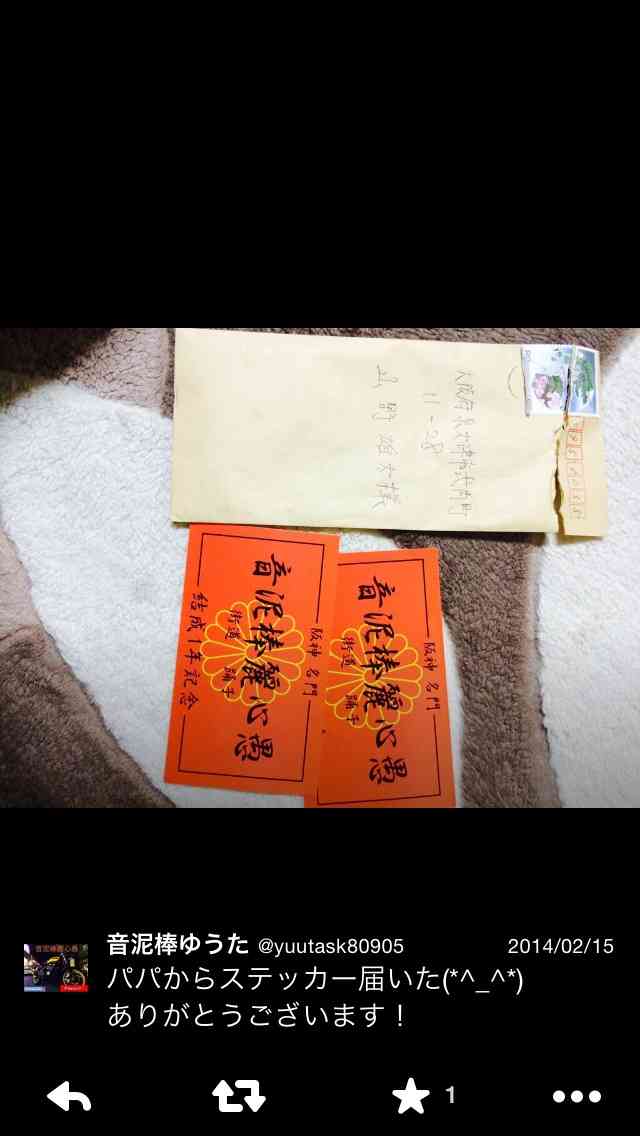 大阪府泉大津市
11-28
様
阪神 名門
音泥棒麗心愚
街道 踊子
結成1年記念
阪神 名門
音泥棒麗心愚
街道 踊子
音泥棒ゆうた @yuutask80905 2014/02/15
パパからステッカー届いた(*^_^*)
ありがとうございます！
1